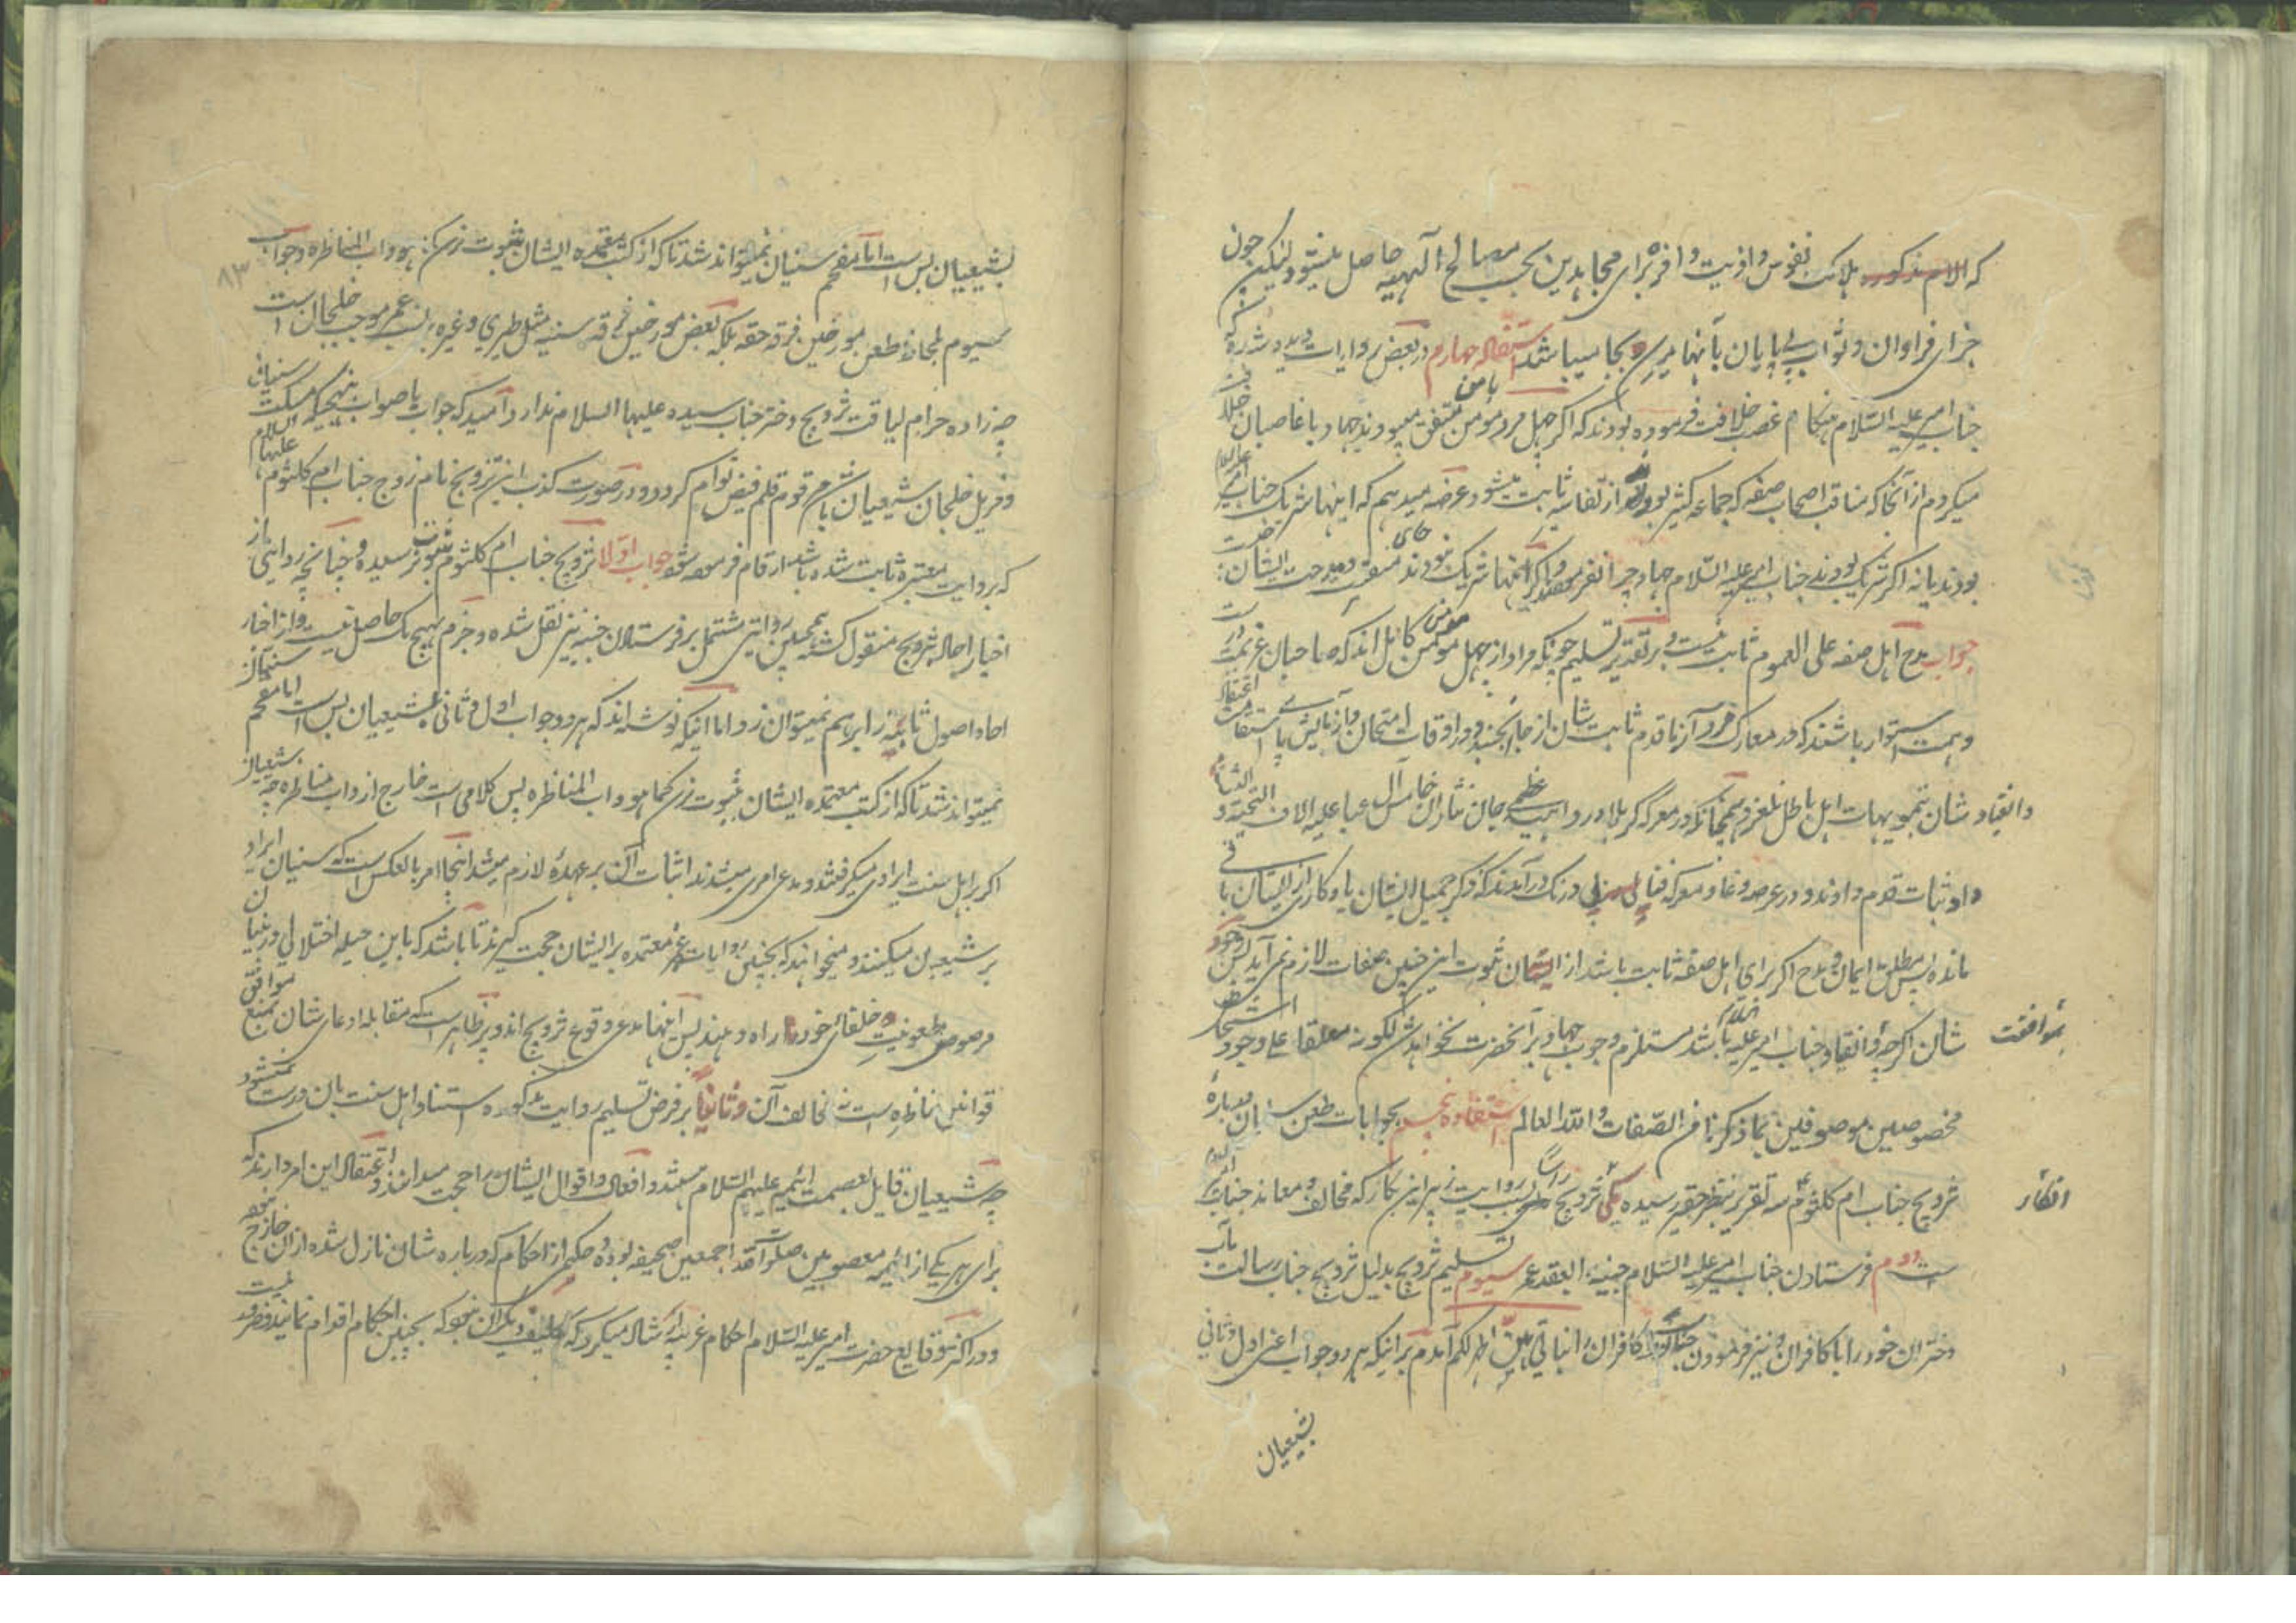 که الام مذکوره هلاکت نفوس و اذیت وافره برای مجاهدین بحسب مصالح الهیه حاصل میشود لیکن چون
جزای فراوان و ثواب بی پایان بآنها میرسد بجا میباشد استفتاء چهارم در بعض روایات دیده شده که
جناب امیر علیه السلام هنگام غصب خلافت فرموده بودند که اگر چهل مرد مومن با من متفق میبودند جهاد با غاصبان خلافت
میکردم از آنجا که مناقب اصحاب صفه که جماعه کثیر بودند از تفاسیر ثابت میشود عرضه میدهم که اینها شریک جناب امیر علیه السلام
بودند یا نه اگر شریک بودند جناب امیر علیه السلام جهاد چرا نفرمودند و اگر اینها شریک نبودند منقبت و مدحت ایشان
جواب مدح اهل صفه علی العموم ثابت نیست و بر تقدیر تسلیم چونکه مراد از چهل مومن مومن کامل اند که صاحبان عزیمت درست
و همت استوار باشند که در معارک مرد آزما قدم ثابت شان از جا نجنبد و در اوقات امتحان و آزمایش پای استقامت
و انقیاد شان بتمویهات اهل باطل نلغزد همچنانکه در معرکه کربلا و در داهیه عظمی جان نثاران خامس آل عبا علیه الاف التحیة و الثناء
داد ثبات قدم دادند و در عرصه وغا و معرکه قتال بی درنگ درآمدند که ذکر جمیل ایشان یادگاری از ایشان باقی
مانده پس مطلق ایمان و مدح اگر برای اهل صفه ثابت باشد از ایشان ثبوت این چنین صفات لازم نمی آید پس وجود
شان اگرچه بموافقت و انقیاد جناب امیر علیه السلام باشد مستلزم وجوب جهاد بر آنحضرت نخواهد شد لکونه معلقا علی وجود اشخاص
مخصوصین موصوفین بما ذکرنا من الصفات والله العالم استفتاء پنجم بجوابات طعن سنیان درباره
تزویج جناب ام کلثوم سه تقریر بنظر حقیر رسیده یکی انکار تزویج راسا بسبب روایت زبیر ابن بکار که مخالف و معاند جناب امیر
است دوم فرستادن جناب امیر علیه السلام جنیه العقد عمر سیوم تسلیم تزویج بدلیل تزویج جناب رسالت مآب
دختران خود را با کافران و نیز فرمودن جناب لوط کافران را بناتی هن اطهر لکم آمدم بر اینکه هر دو جواب اعنی اول و ثانی
بشیعیان
بشیعیان بس است اما مفحم سنیان نمیتواند شد تا که از کتب معتمده ایشان بثبوت نرسد کما هو داب المناظره و جواب
سیوم بلحاظ طعن مورخین فرقه حقه بلکه بعض مورخین فرقه سنیه مثل طبری و غیره بنسب عمر موجب خلجان است
چه زاده حرام لیاقت تزویج دختر جناب سیده علیها السلام ندارد امید که جواب با صواب بنهجیکه مسکت سنیان
و مزیل خلجان شیعیان باشد مرقوم قلم فیض توام گردد و در صورت کذب این تزویج نام زوج جناب ام کلثوم علیها السلام
که بروایت معتبره ثابت شده باشد ارقام فرموده شود جواب اولا تزویج جناب ام کلثوم بثبوت نرسیده و چنانچه روایتی از
اخبار احاد تزویج منقول گشته همچنین روایتی مشتمل بر فرستادن جنیه نیز نقل شده و جزم بهیچ یک حاصل نیست و از اخبار
احاد اصول ثابته را بر هم نمیتوان زد اما اینکه نوشته اند که هر دو جواب اول و ثانی بشیعیان بس است اما مفحم سنیان
نمیتواند شد تا که از کتب معتمده ایشان بثبوت نرسد کما هو داب المناظره پس کلامی است خارج از داب مناظره چه شیعیان
اگر بر اهل سنت ایرادی میگرفتند و مدعی امری میشدند اثبات آن بر عهده لازم میشد اینجا امر بالعکس است که سنیان ایراد
بر شیعیان میکنند و میخواهند که بچنین روایات غیر معتمده بر ایشان حجت گیرند تا باشد که باین حیله اختلالی در بنیان
مرصوص مطعونیت خلفای خود را راه دهند پس اینها مدعی وقوع تزویج اند و پر ظاهر است که مقابله ادعای شان بمنع موافق
قوانین مناظره است نه مخالف آن و ثانیا بر فرض تسلیم روایت مذکوره استناد اهل سنت بان درست نمیشود
چه شیعیان قایل بعصمت ائمه علیهم السلام هستند و افعال و اقوال ایشان را حجت میدانند و اعتقاد این امر دارند که
برای هر یکی از ائمه معصومین صلوات الله علیهم اجمعین صحیفه بوده و حکمی از احکام که درباره شان نازل شده از ان خارج نبود
و در اکثر وقایع حضرت امیر علیه السلام احکام غریبه ارشاد میکرد که تکلیف دیگران نبود که بچنین احکام اقدام نمایند و ضرور نیست